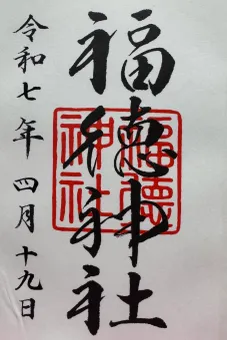 福徳神社
福徳神社
令和七年 四月十九日